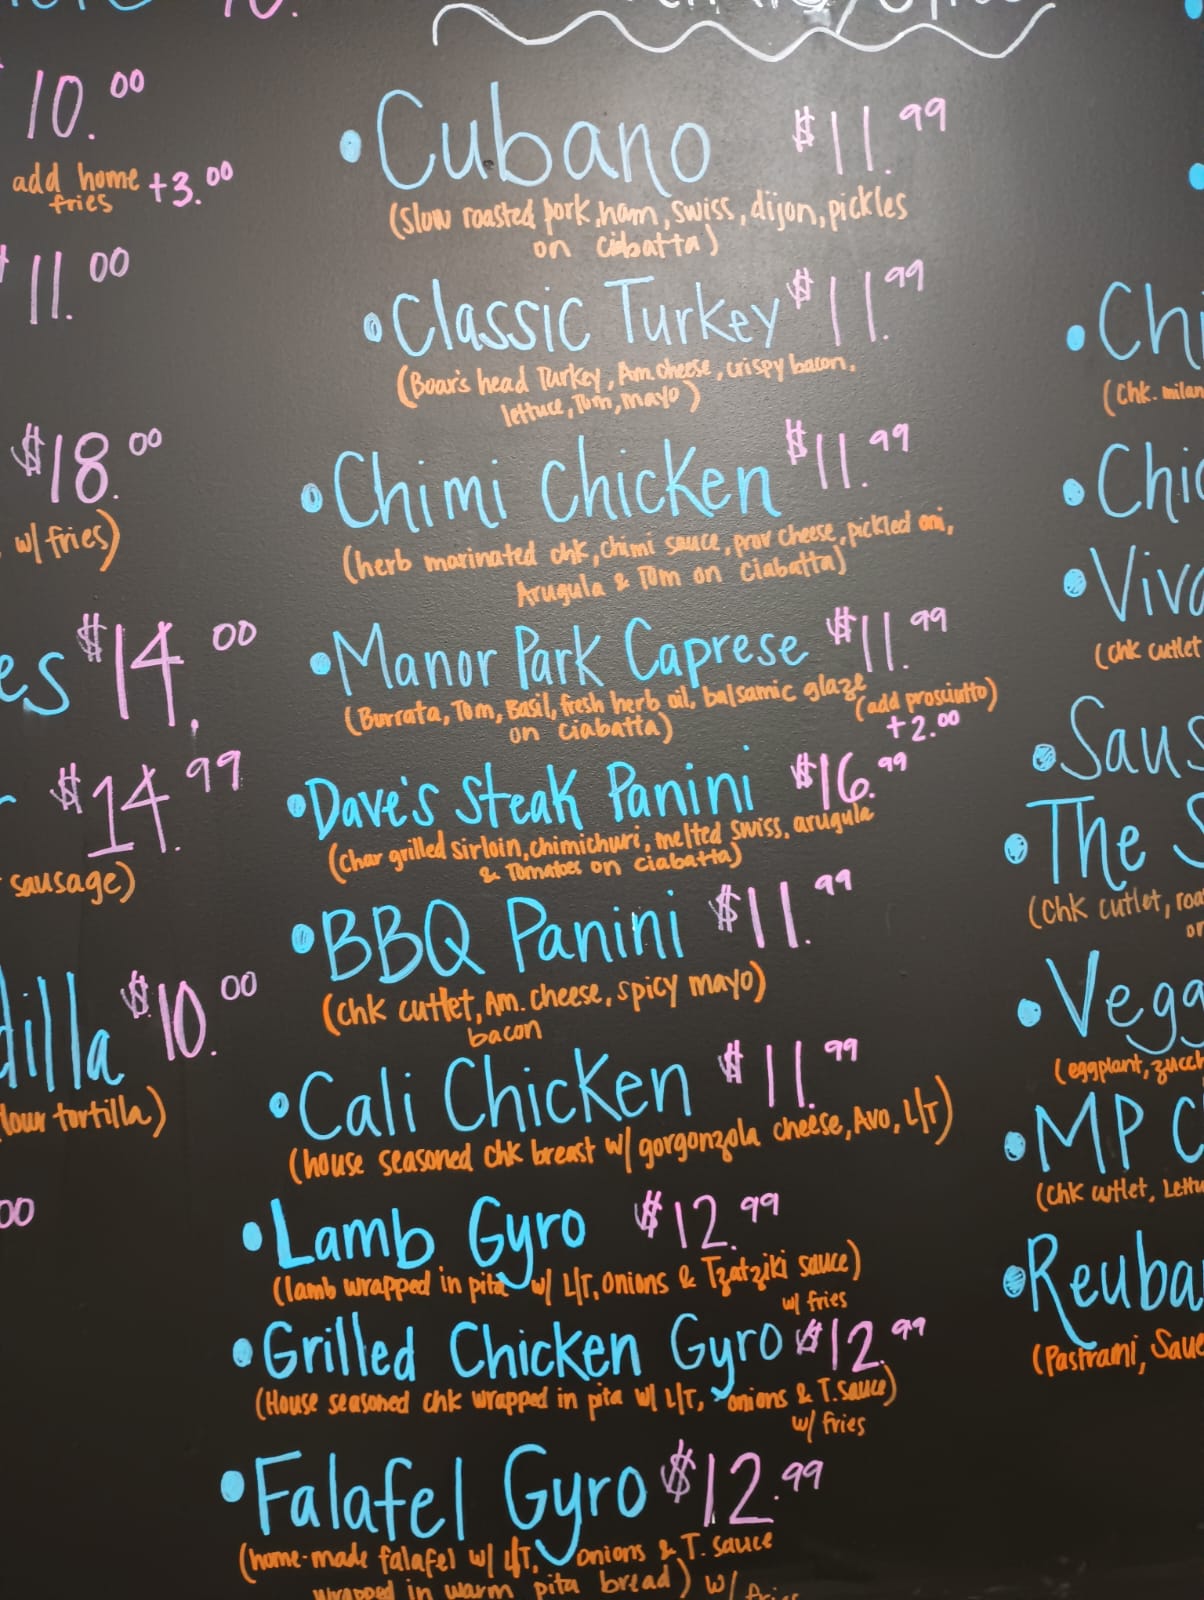 10.00
add home +3.00
fries
11.00
$18.00
w/ fries)
es $14.00
$14.99
sausage)
dilla $10.00
flour tortilla)
00
• Cubano $11.99
(slow roasted pork, ham, swiss, dijon, pickles
on ciabatta)
• Classic Turkey $11.99
(Boar's head Turkey, Am. cheese, crispy bacon,
lettuce, Tom, mayo)
• Chimi Chicken $11.99
(herb marinated chk, chimi sauce, prov cheese, pickled oni,
Arugula & Tom on ciabatta)
• Manor Park Caprese $11.99
(Burrata, Tom, Basil, fresh herb oil, balsamic glaze
on ciabatta)
(add prosciutto)
+2.00
• Dave's Steak Panini $16.99
(char grilled sirloin, chimichuri, melted swiss, arugula
& Tomatoes on ciabatta)
• BBQ Panini $11.99
(chk cutlet, Am. cheese, spicy mayo)
bacon
• Cali Chicken $11.99
(house seasoned chk breast w/ gorgonzola cheese, Avo, L/T)
• Lamb Gyro $12.99
(lamb wrapped in pita w/ L/T, onions & Tzatziki sauce)
w/ fries
• Grilled Chicken Gyro $12.99
(House seasoned chk wrapped in pita w/ L/T, onions & T. sauce)
w/ fries
• Falafel Gyro $12.99
(home-made falafel w/ L/T, onions & T. sauce
wrapped in warm pita bread) w/ fries
• Chi
(chk. milan
• Chic
• Viva
(chk cutlet
• Saus
• The S
(chk cutlet, roa
or
• Vegg
(eggplant, zucch
• MP C
(chk cutlet, Lettu
• Reuba
(Pastrami, Saue